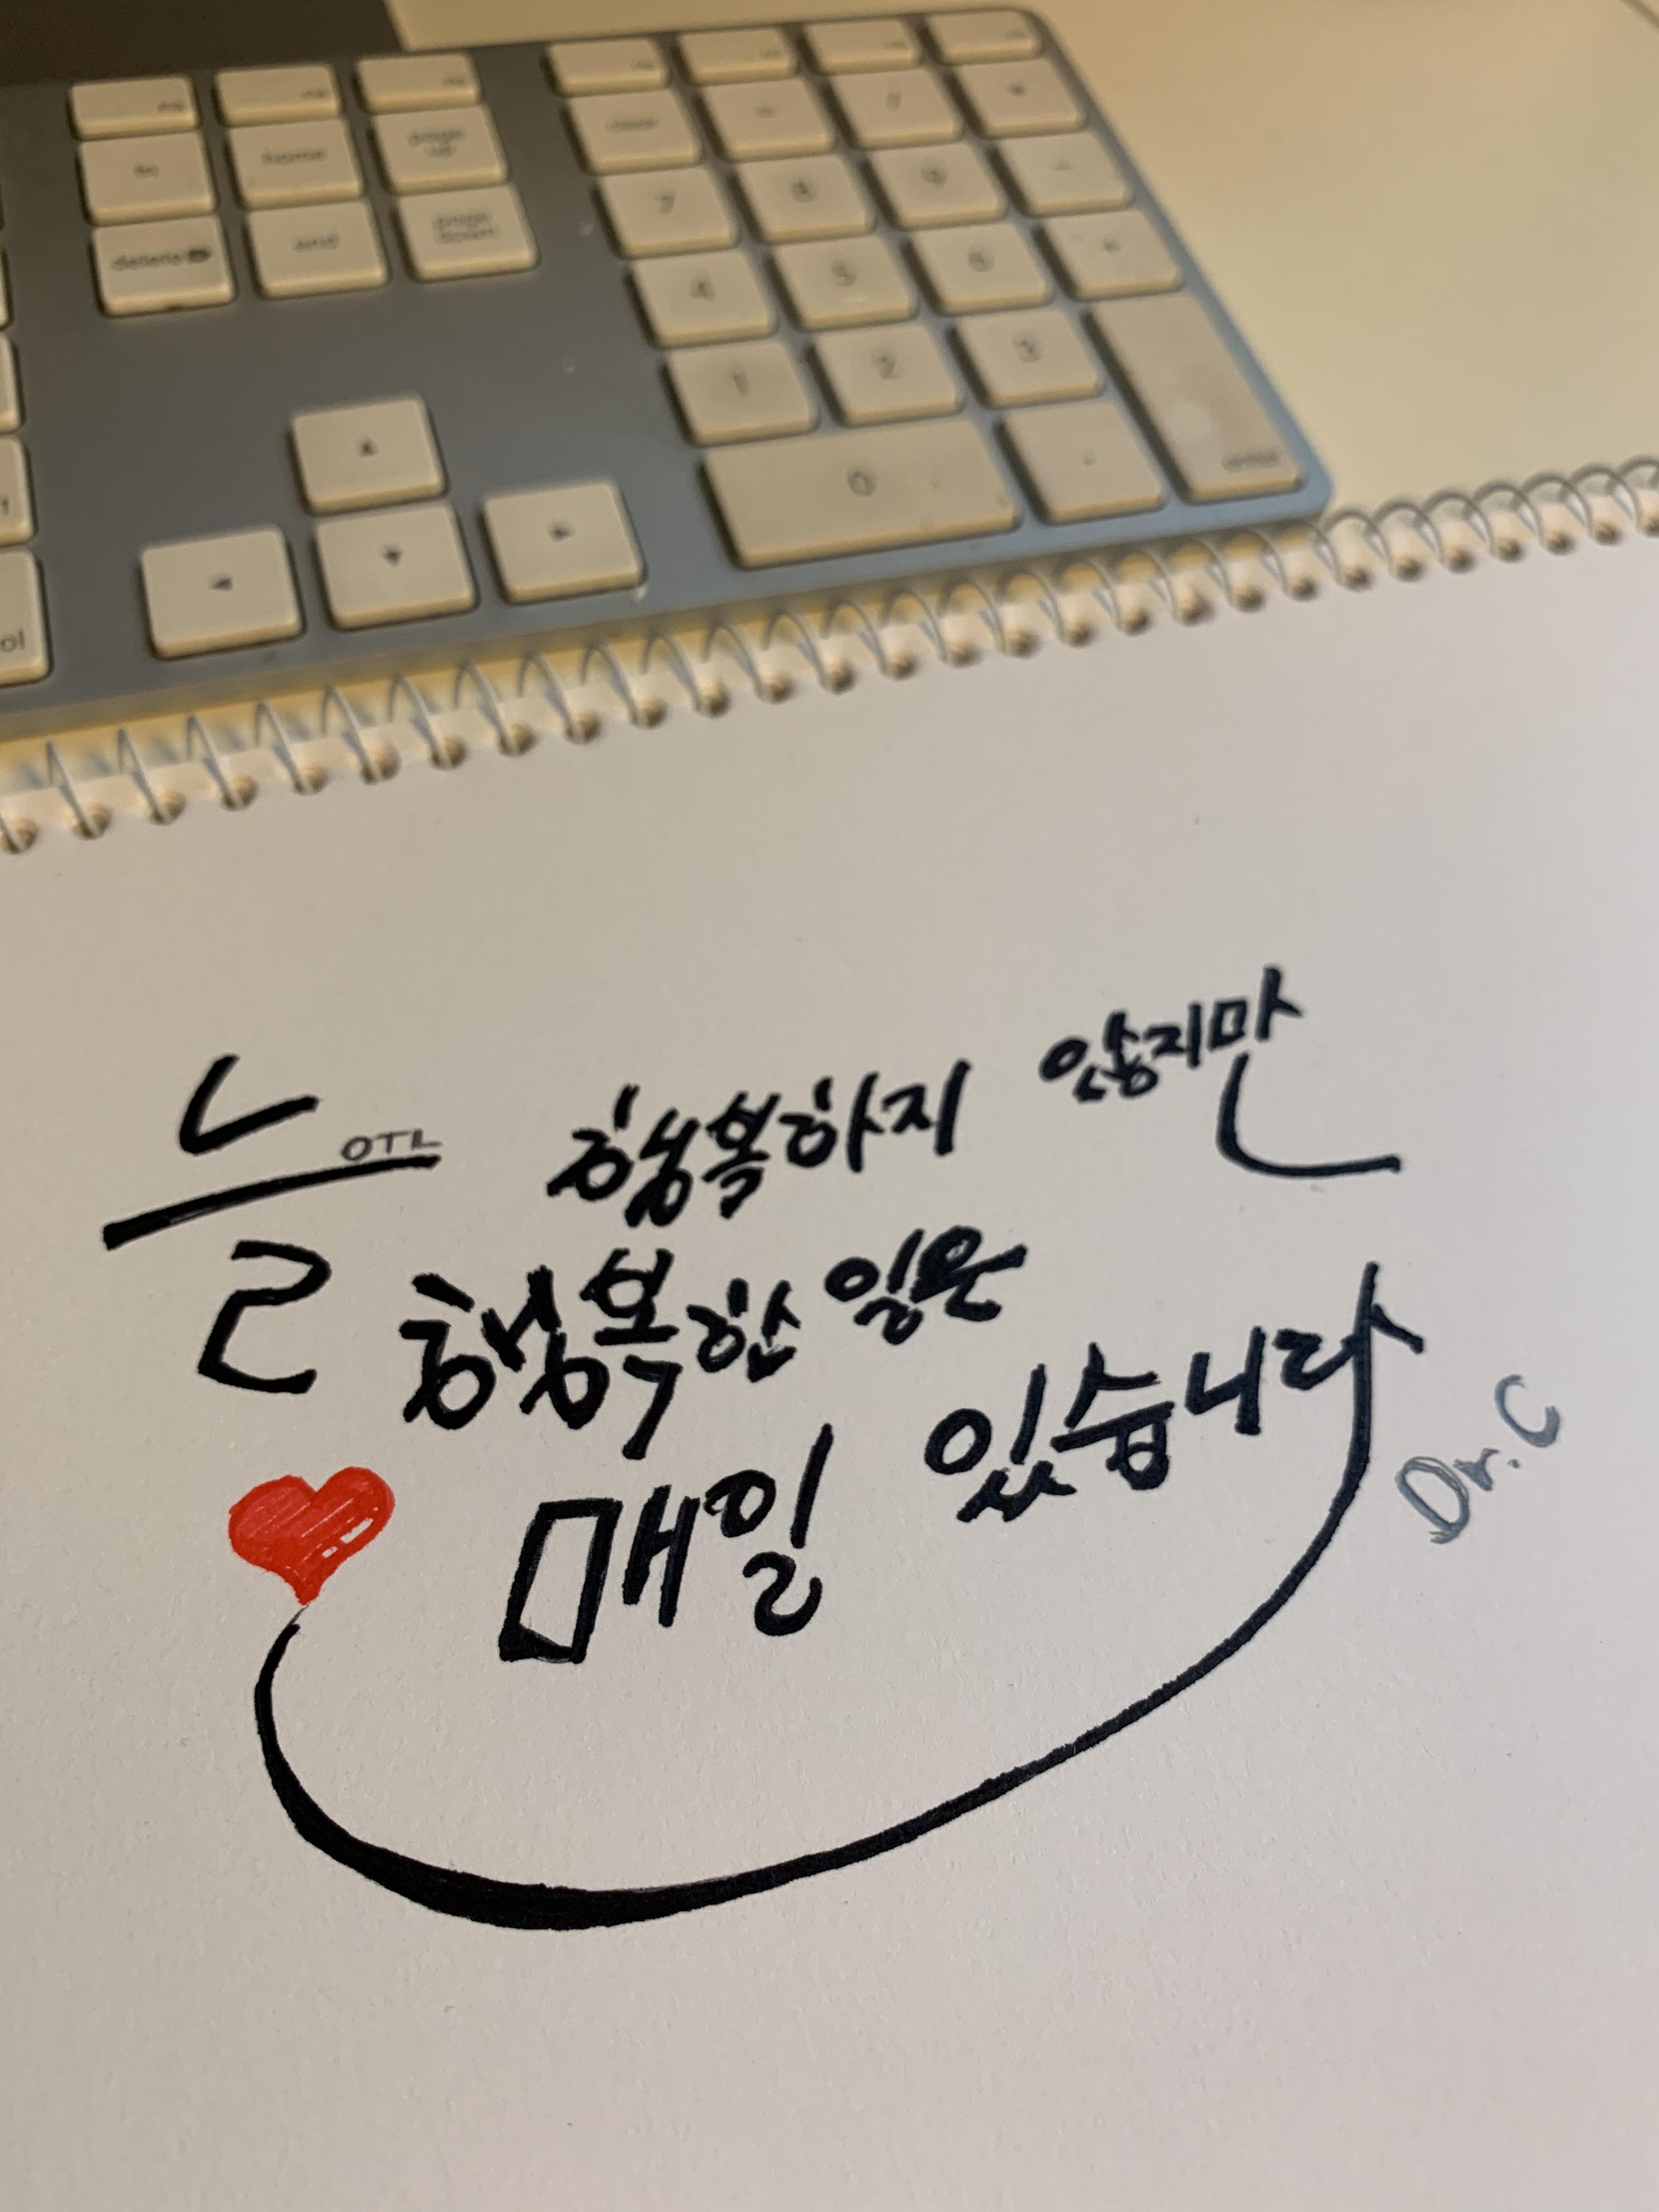 늘 행복하지 않지만
OTL
행복한 일은
매일 있습니다
Dr. C
fn
home
page up
clear
delete
end
page down
7
8
9
4
5
6
1
2
3
0
enter
ol